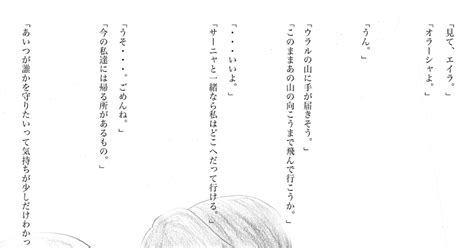 「見て、エイラ。」
「オラーシャよ。」
「うん。」
「ウラルの山に手が届きそう。」
「このままあの山の向こうまで飛んで行こうか。」
「・・・いいよ。」
「サーニャと一緒なら私はどこへだって行ける。」
「うそ・・・。ごめんね。」
「今の私達には帰る所があるもの。」
「あいつが誰かを守りたいって気持ちが少しだけわかっ